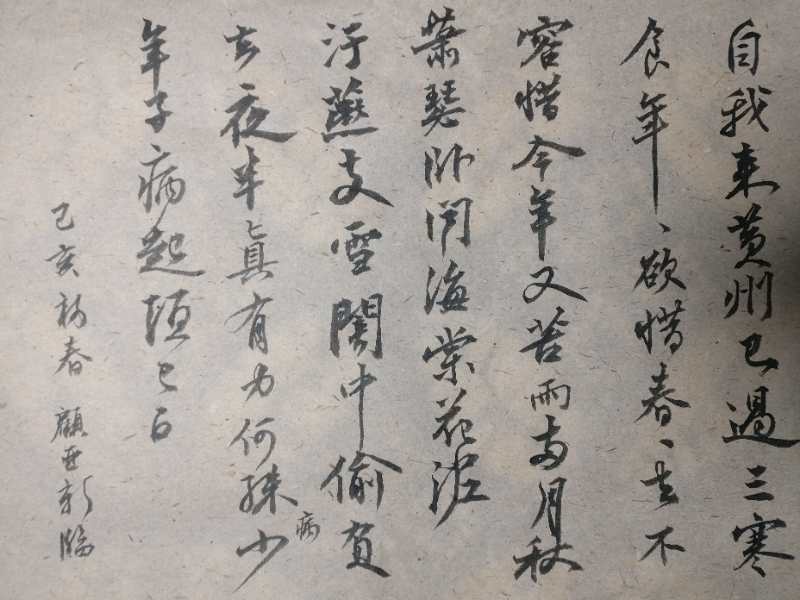 自我来黄州已過三寒
食年、欲惜春、去不
容惜今年又苦雨兩月秋
蕭瑟卧聞海棠花泥
汙燕支雪闇中偷負
去夜半真有力何殊少
病
年子病起頭已白
己亥初春 顧亚新临